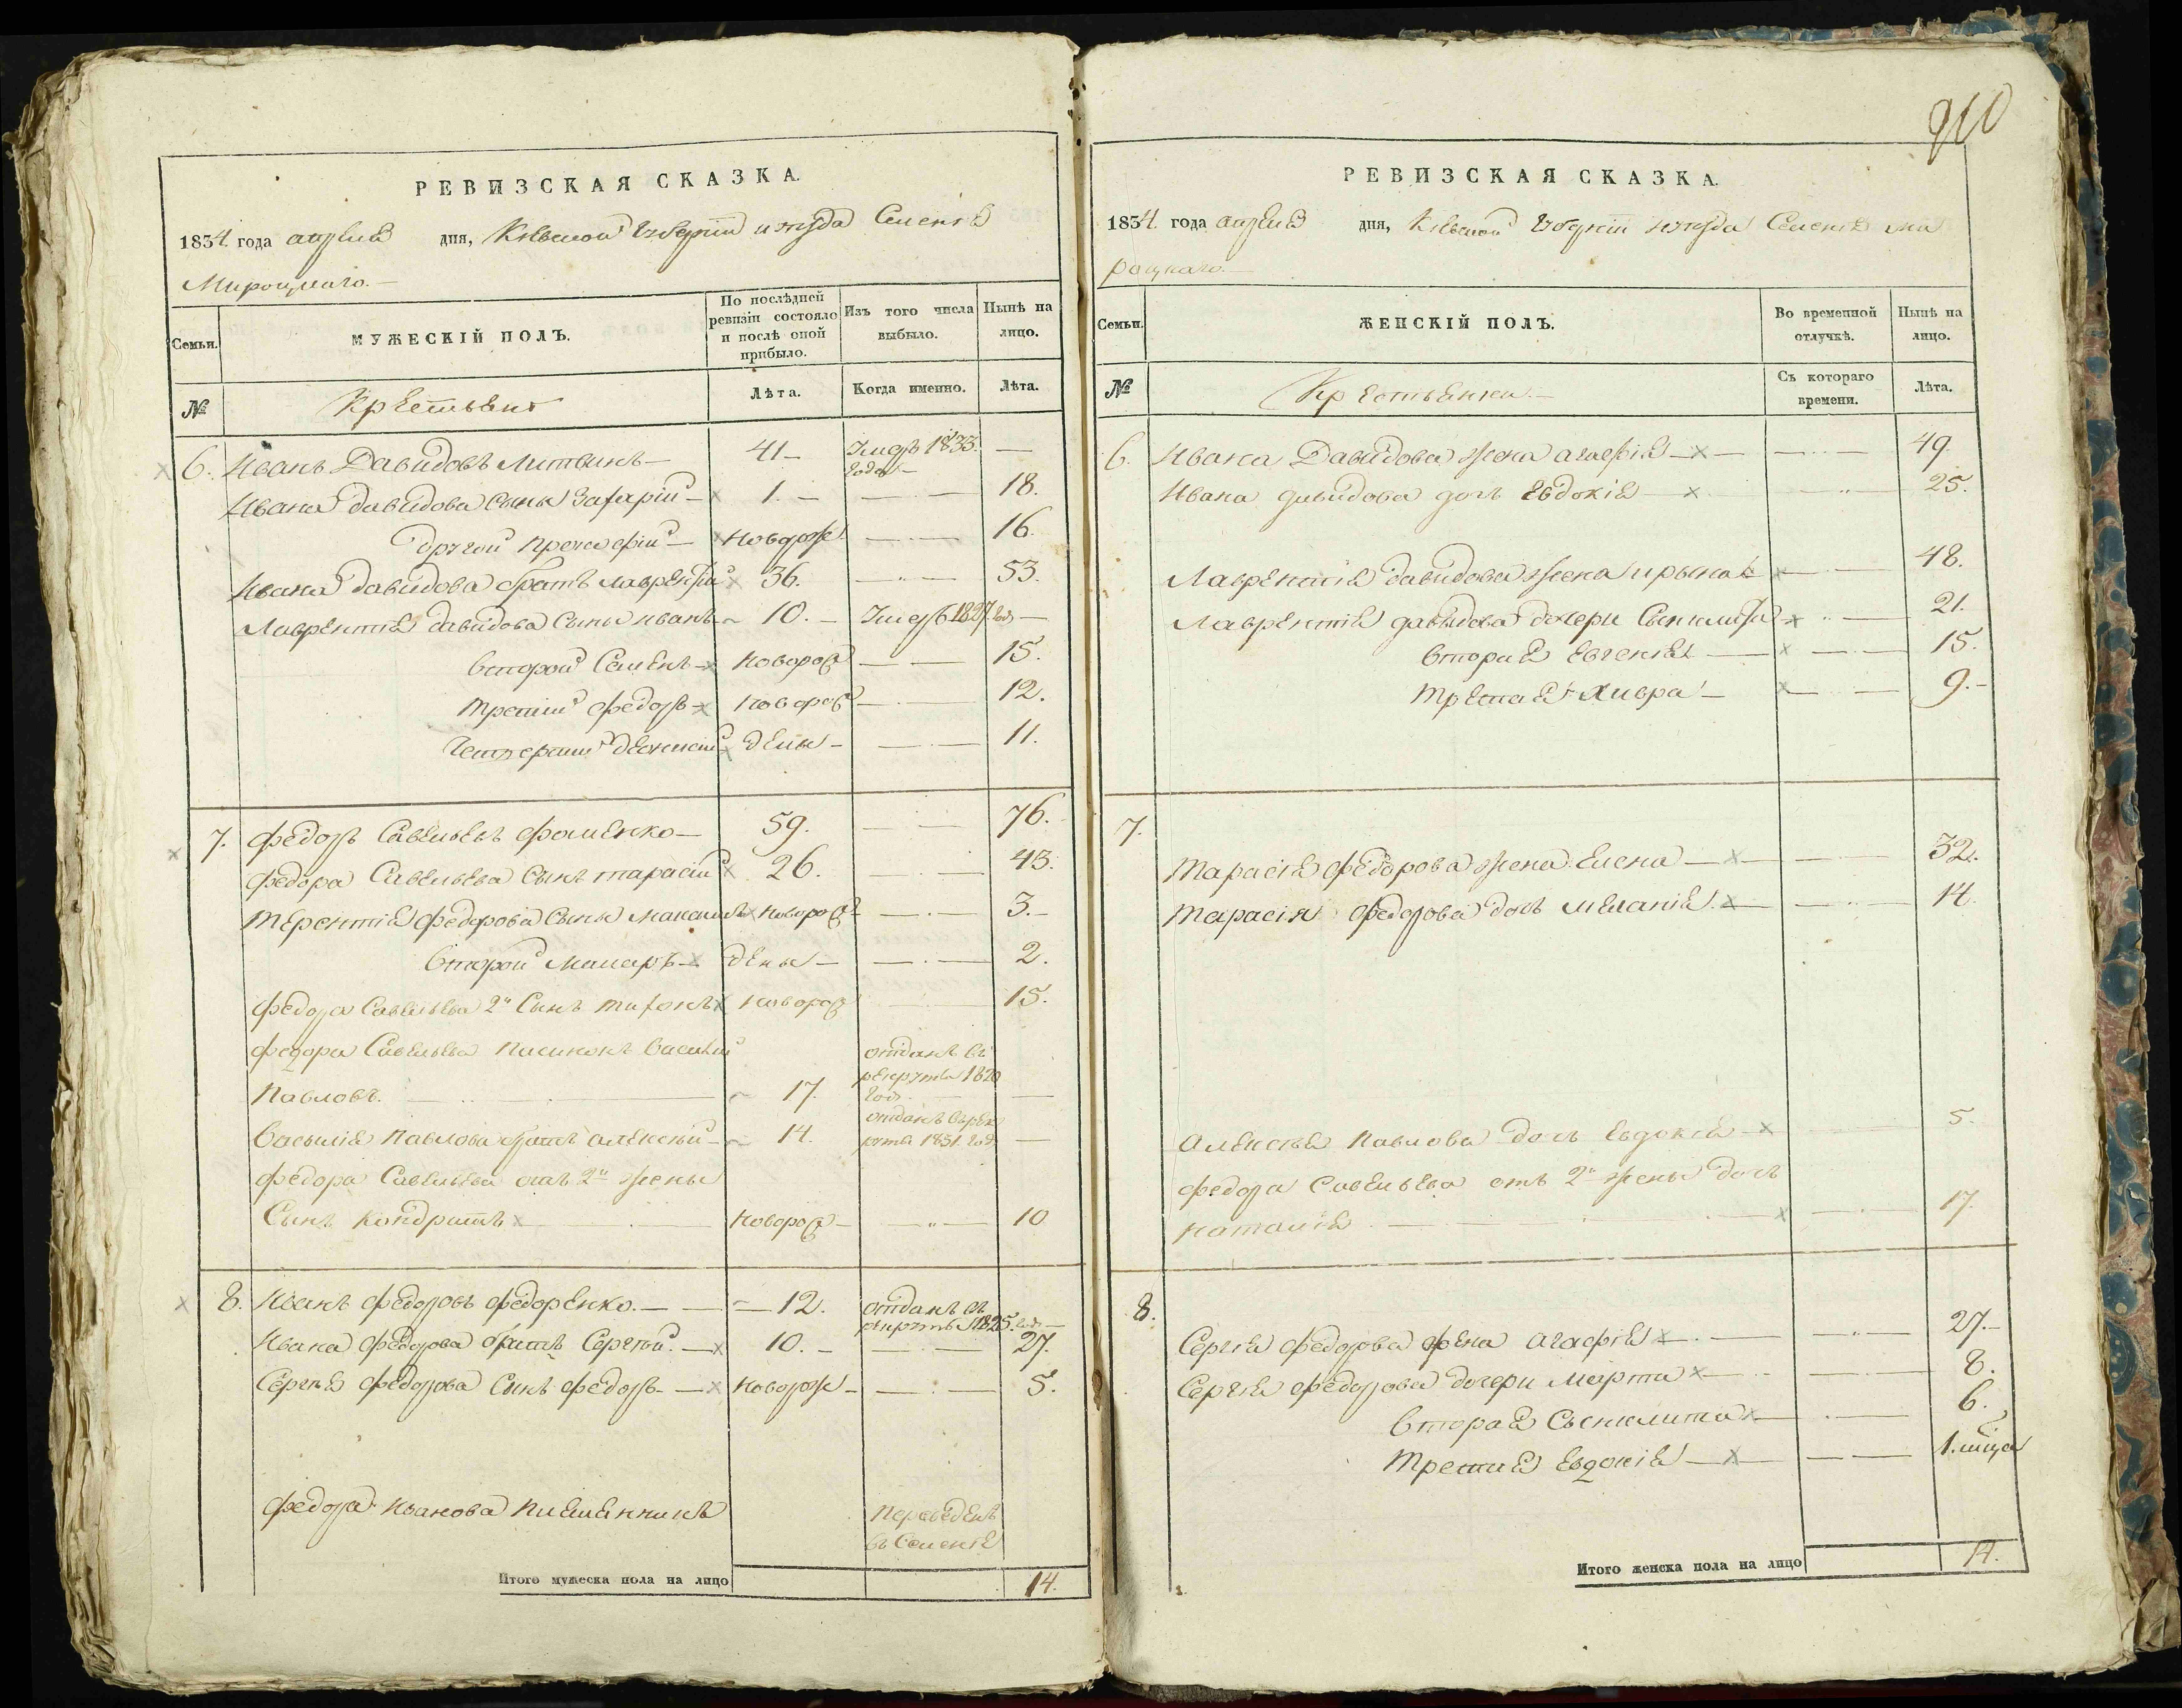 910
РЕВИЗСКАЯ СКАЗКА.
1834 года апреля дня, Кіевской Губерніи и уезда Селенія
Мироцкаго.
Семьи.
МУЖЕСКІЙ ПОЛЪ.
По послѣдней ревизіи состояло и послѣ оной прибыло.
Изъ того числа выбыло.
Нынѣ на лицо.
№
Крестьяне
Лѣта.
Когда именно.
Лѣта.
6. Иванъ Давидовъ Литвинъ 41 Умеръ 1833. года
Ивана Давидова сынъ Захарій 1. 18.
другой Прокофій новорож 16.
Ивана Давидова братъ Лаврентій 36. 53.
Лаврентія Давидова сынъ Иванъ 10. Умеръ 1827. год
второй Семенъ новорож 15.
третій Федоръ новорож 12.
четвертый 11.
7. Федоръ Савельевъ Фоменко 59. 76.
Федора Савельева сынъ Тарасій 26. 43.
Терентія Федорова сынъ Максимъ новорож 3.
второй Макаръ 2.
Федора Савельева 2й сынъ Тихонъ новорож 15.
Федора Савельева Василій
Павловъ. 17. отданъ въ рекруты 1820 год.
Василія Павлова братъ Алексій 14. отданъ въ рекруты 1831. год
Федора Савельева отъ 2й жены
сынъ Кондратъ новорож 10
8. Иванъ Федоровъ Федоренко. 12. отданъ въ рекруты 1825. год
Ивана Федорова братъ Сергѣй 10. 27.
Сергѣя Федорова сынъ Федоръ новорож 5.
Федора Иванова племянникъ переведенъ
въ селенія
Итого мужеска пола на лицо 14.
РЕВИЗСКАЯ СКАЗКА.
1834 года апреля дня, Кіевской Губерніи и уезда Селенія Ми
роцкаго.
Семьи.
ЖЕНСКІЙ ПОЛЪ.
Во временной отлучкѣ.
Нынѣ на лицо.
№
Крестьянки
Съ котораго времени.
Лѣта.
6. Ивана Давидова жена Агафія 49.
Ивана Давидова дочь Евдокія 25.
Лаврентія Давидова жена Ирына 48.
Лаврентія Давидова дочери Сынклита 21.
вторая Евгенія 15.
третая Хивра 9.
7.
Тарасія Федорова жена Елена 32.
Тарасія Федорова дочь Меланія 14.
Алексѣя Павлова дочь Евдокія 5.
Федора Савельева отъ 2й жены дочь
Наталія 17.
8.
Сергія Федорова жена Агафія 27.
Сергія Федорова дочери Марта 8.
вторая Сынклита 6.
третия Евдокія 1. мѣца
Итого женска пола на лицо 14.